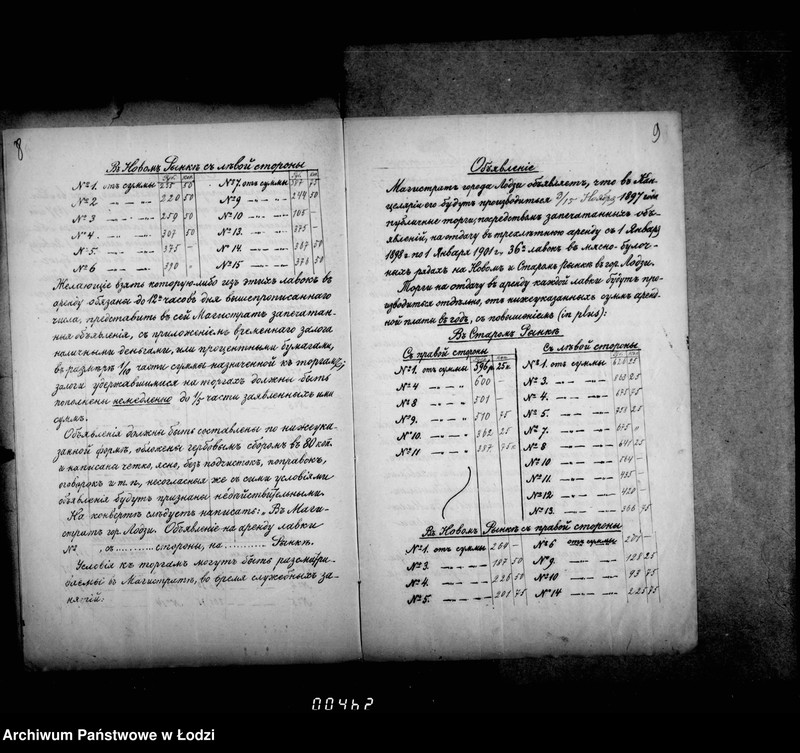 8
Въ Новомъ Рынкѣ съ лѣвой стороны
Руб. коп. Руб. коп.
№ 1. отъ суммы 235 50 № 7. отъ суммы 75
№ 2 220 50 № 9 244 50
№ 3 259 50 № 10 105 —
№ 4. 307 50 № 13. 375 —
№ 5. 375 — № 14. 387 50
№ 6 390 № 15 378 50
Желающіе взять которую-либо изъ этихъ лавокъ въ
аренду обязаны до 12 часовъ дня вышепрописаннаго
числа, представить въ сей Магистратъ запечатан-
ныя объявленія, съ приложеніемъ временнаго залога
наличными деньгами, или процентными бумагами,
въ размѣрѣ 1/10 части суммы назначенной къ торгамъ;
залоги удержавшимися на торгахъ должны быть
пополнены немедленно до 1/3 части заявленныхъ ими
суммъ.
Объявленія должны быть составлены по нижеука-
занной формѣ, обложены гербовымъ сборомъ въ 80 коп.
и написаны четко, ясно, безъ подчистокъ, поправокъ,
оговорокъ и т. п., несогласныя же съ сими условіями
объявленія будутъ признаны недѣйствительными.
На конвертѣ слѣдуетъ написать: „Въ Маги-
стратъ гор. Лодзи. Объявленіе на аренду лавки
№ ..., съ ......... стороны, на ......... Рынкѣ.
Условія къ торгамъ могутъ быть разсматри-
ваемы въ Магистратѣ, во время служебныхъ за-
нятій.
9
Объявленіе
Магистратъ города Лодзи объявляетъ, что въ Кан-
целяріи его будутъ производиться Ноября 1897 года
публичные торги, посредствомъ запечатанныхъ объ-
явленій, на отдачу въ трехлѣтнюю аренду съ 1 Января
1898 г. по 1 Января 1901 г., 36 лавокъ въ мясно-булоч-
ныхъ рядахъ на Новомъ и Старомъ Рынкѣ въ гор. Лодзи.
Торги на отдачу въ аренду каждой лавки будутъ про-
изводиться отдѣльно, отъ нижеуказанныхъ суммъ аренд-
ной платы въ годъ, съ повышеніемъ (in plus):
Въ Старомъ Рынкѣ
Съ правой стороны Съ лѣвой стороны
№ 1. отъ суммы 596 р. 25 к. № 1. отъ суммы 628 25
№ 4 600 — № 3. 25
№ 8 501 — № 4. 675 75
№ 9. 510 75 № 5. 758 25
№ 10. 362 25 № 7. 675
№ 11 337 75 № 8 641 25
№ 10 564 —
№ 11. 435 —
№ 12 420 —
№ 13. 366 75
Въ Новомъ Рынкѣ съ правой стороны
№ 1. отъ суммы 260 — № 6 отъ суммы 201 —
№ 3. 187 50 № 9. 128 25
№ 4. 226 50 № 10 93 75
№ 5. 201 75 № 14 225 75
00462
Archiwum Państwowe w Łodzi